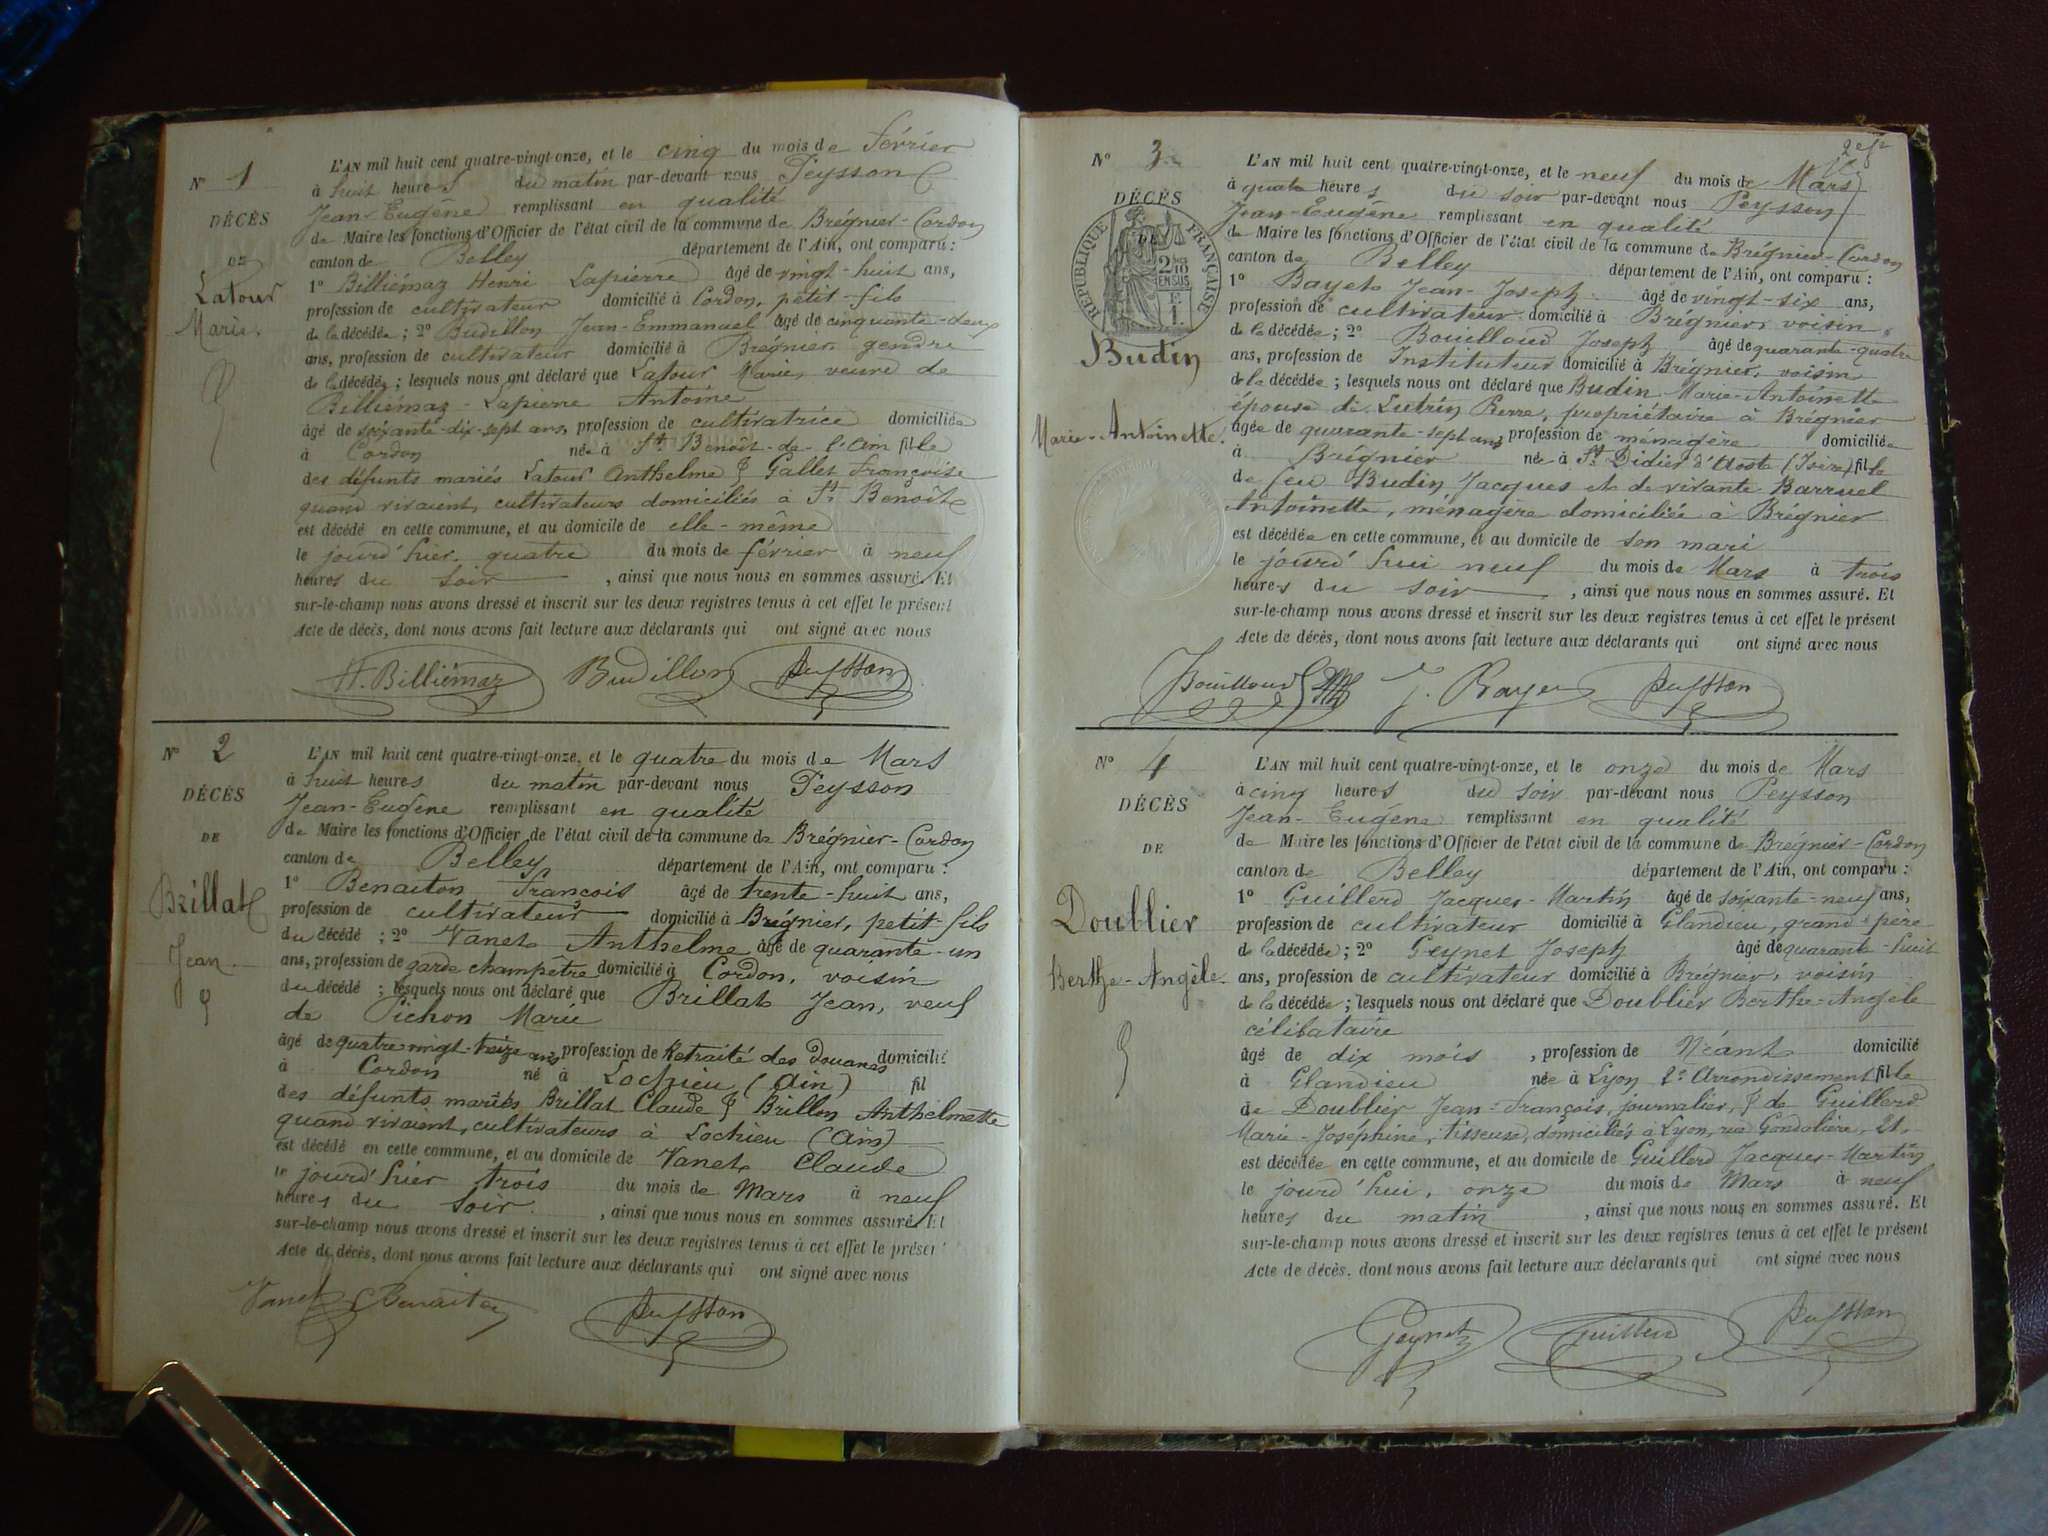 N° 1
DÉCÈS
DE
Latour
Marie.
L'AN mil huit cent quatre-vingt-onze, et le cinq du mois de février
à huit heures du matin par-devant nous Peysson
Jean-Eugène remplissant en qualité
de Maire les fonctions d'Officier de l'état civil de la commune de Brégnier-Cordon
canton de Belley département de l'Ain, ont comparu :
1° Billiémaz Henri Lapierre âgé de vingt-huit ans,
profession de cultivateur domicilié à Cordon, petit-fils
de la décédée ; 2° Budillon Jean-Emmanuel âgé de cinquante-deux
ans, profession de cultivateur domicilié à Brégnier, gendre
de la décédée ; lesquels nous ont déclaré que Latour Marie, veuve de
Billiémaz-Lapierre Antoine
âgé de soixante-dix-sept ans, profession de cultivatrice domiciliée
à Cordon née à St Benoît-de-l'Ain fille
des défunts mariés Latour Anthelme & Gallet Françoise
quand vivaient, cultivateurs domiciliés à St Benoît
est décédé en cette commune, et au domicile de elle-même
le jourd'hier, quatre du mois de février à neuf
heures du soir , ainsi que nous nous en sommes assuré. Et
sur-le-champ nous avons dressé et inscrit sur les deux registres tenus à cet effet le présent
Acte de décès, dont nous avons fait lecture aux déclarants qui ont signé avec nous
H. Billiémaz Budillon Peysson
N° 2
DÉCÈS
DE
Brillat
Jean
L'AN mil huit cent quatre-vingt-onze, et le quatre du mois de Mars
à huit heures du matin par-devant nous Peysson
Jean-Eugène remplissant en qualité
de Maire les fonctions d'Officier de l'état civil de la commune de Brégnier-Cordon
canton de Belley département de l'Ain, ont comparu :
1° Benaiton François âgé de trente-huit ans,
profession de cultivateur domicilié à Brégnier, petit-fils
du décédé ; 2° Vanet Anthelme âgé de quarante-un
ans, profession de garde champêtre domicilié à Cordon, voisin
du décédé ; lesquels nous ont déclaré que Brillat Jean, veuf
de Pichon Marie
âgé de quatre vingt-treize ans profession de Retraité des Douanes domicilié
à Cordon né à Lochieu (Ain) fil
des défunts mariés Brillat Claude & Brillon Anthelmette
quand vivaient, cultivateurs à Lochieu (Ain)
est décédé en cette commune, et au domicile de Vanet Claude
le jourd'hier trois du mois de Mars à neuf
heures du soir , ainsi que nous nous en sommes assuré. Et
sur-le-champ nous avons dressé et inscrit sur les deux registres tenus à cet effet le présent
Acte de décès, dont nous avons fait lecture aux déclarants qui ont signé avec nous
Vanet Benaiton Peysson
N° 3
DÉCÈS
DE
RÉPUBLIQUE FRANÇAISE
Budin
Marie-Antoinette.
L'AN mil huit cent quatre-vingt-onze, et le neuf du mois de Mars
à quatre heures du soir par-devant nous Peysson
Jean-Eugène remplissant en qualité
de Maire les fonctions d'Officier de l'état civil de la commune de Brégnier-Cordon
canton de Belley département de l'Ain, ont comparu :
1° Bayet Jean-Joseph âgé de vingt-six ans,
profession de cultivateur domicilié à Brégnier, voisin
de la décédée ; 2° Bouilloud Joseph âgé de quarante-quatre
ans, profession de Instituteur domicilié à Brégnier, voisin
de la décédée ; lesquels nous ont déclaré que Budin Marie-Antoinette
épouse de Lutrin Pierre, propriétaire à Brégnier
âgée de quarante-sept ans profession de ménagère domiciliée
à Brégnier née à St Didier d'Aoste (Isère) fille
de feu Budin Jacques et de vivante Barruel
Antoinette, ménagère domiciliée à Brégnier
est décédée en cette commune, et au domicile de son mari
le jourd'hui neuf du mois de Mars à trois
heures du soir , ainsi que nous nous en sommes assuré. Et
sur-le-champ nous avons dressé et inscrit sur les deux registres tenus à cet effet le présent
Acte de décès, dont nous avons fait lecture aux déclarants qui ont signé avec nous
Bouilloud J. Bayet Peysson
N° 4
DÉCÈS
DE
Doublier
Berthe-Angèle.
L'AN mil huit cent quatre-vingt-onze, et le onze du mois de Mars
à cinq heures du soir par-devant nous Peysson
Jean-Eugène remplissant en qualité
de Maire les fonctions d'Officier de l'état civil de la commune de Brégnier-Cordon
canton de Belley département de l'Ain, ont comparu :
1° Guillerd Jacques-Martin âgé de soixante-neuf ans,
profession de cultivateur domicilié à Glandieu, grand-père
de la décédée ; 2° Geynet Joseph âgé de quarante-huit
ans, profession de cultivateur domicilié à Brégnier, voisin
de la décédée ; lesquels nous ont déclaré que Doublier Berthe-Angèle
célibataire
âgé de dix mois , profession de Néant domicilié
à Glandieu née à Lyon 2e Arrondissement fille
de Doublier Jean-François, journalier, & de Guillerd
Marie-Joséphine, tisseuse, domiciliés à Lyon, rue Gondolière, 21,
est décédée en cette commune, et au domicile de Guillerd Jacques-Martin
le jourd'hui, onze du mois de Mars à neuf
heures du matin , ainsi que nous nous en sommes assuré. Et
sur-le-champ nous avons dressé et inscrit sur les deux registres tenus à cet effet le présent
Acte de décès, dont nous avons fait lecture aux déclarants qui ont signé avec nous
Geynet Guillerd Peysson